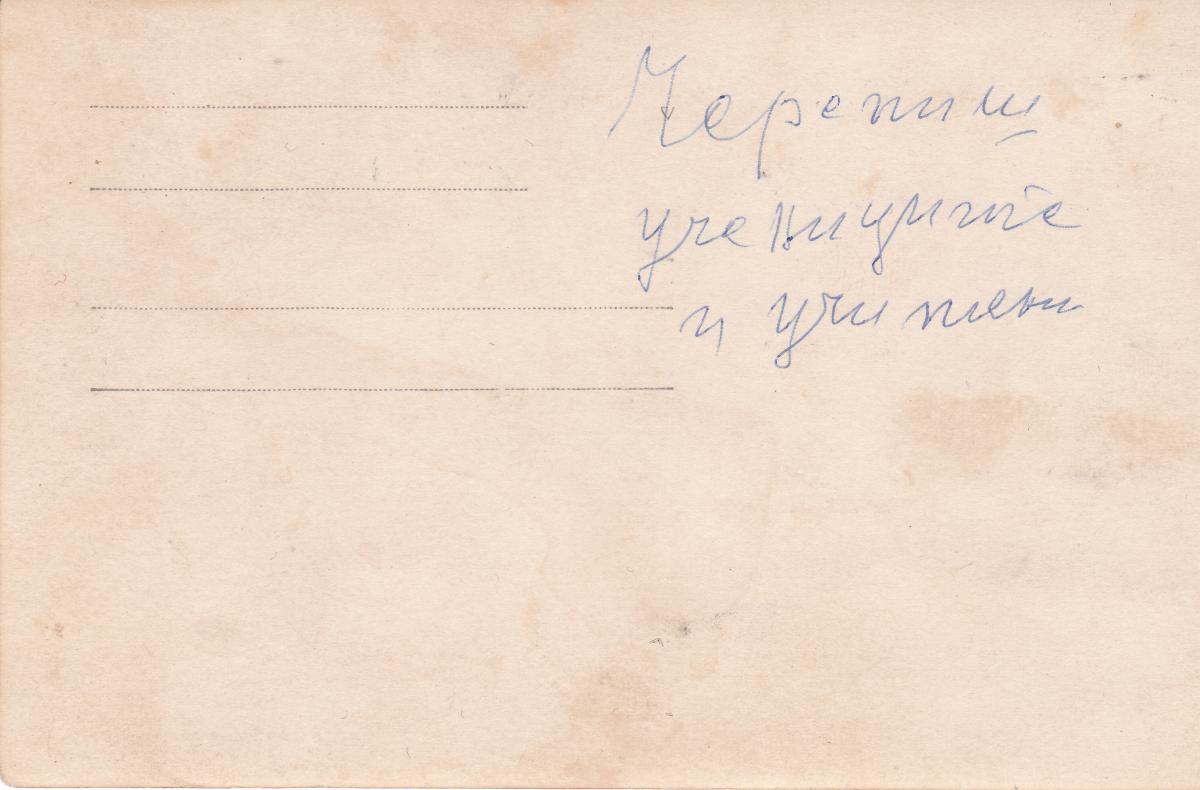 Черепиш
учениците
и учители